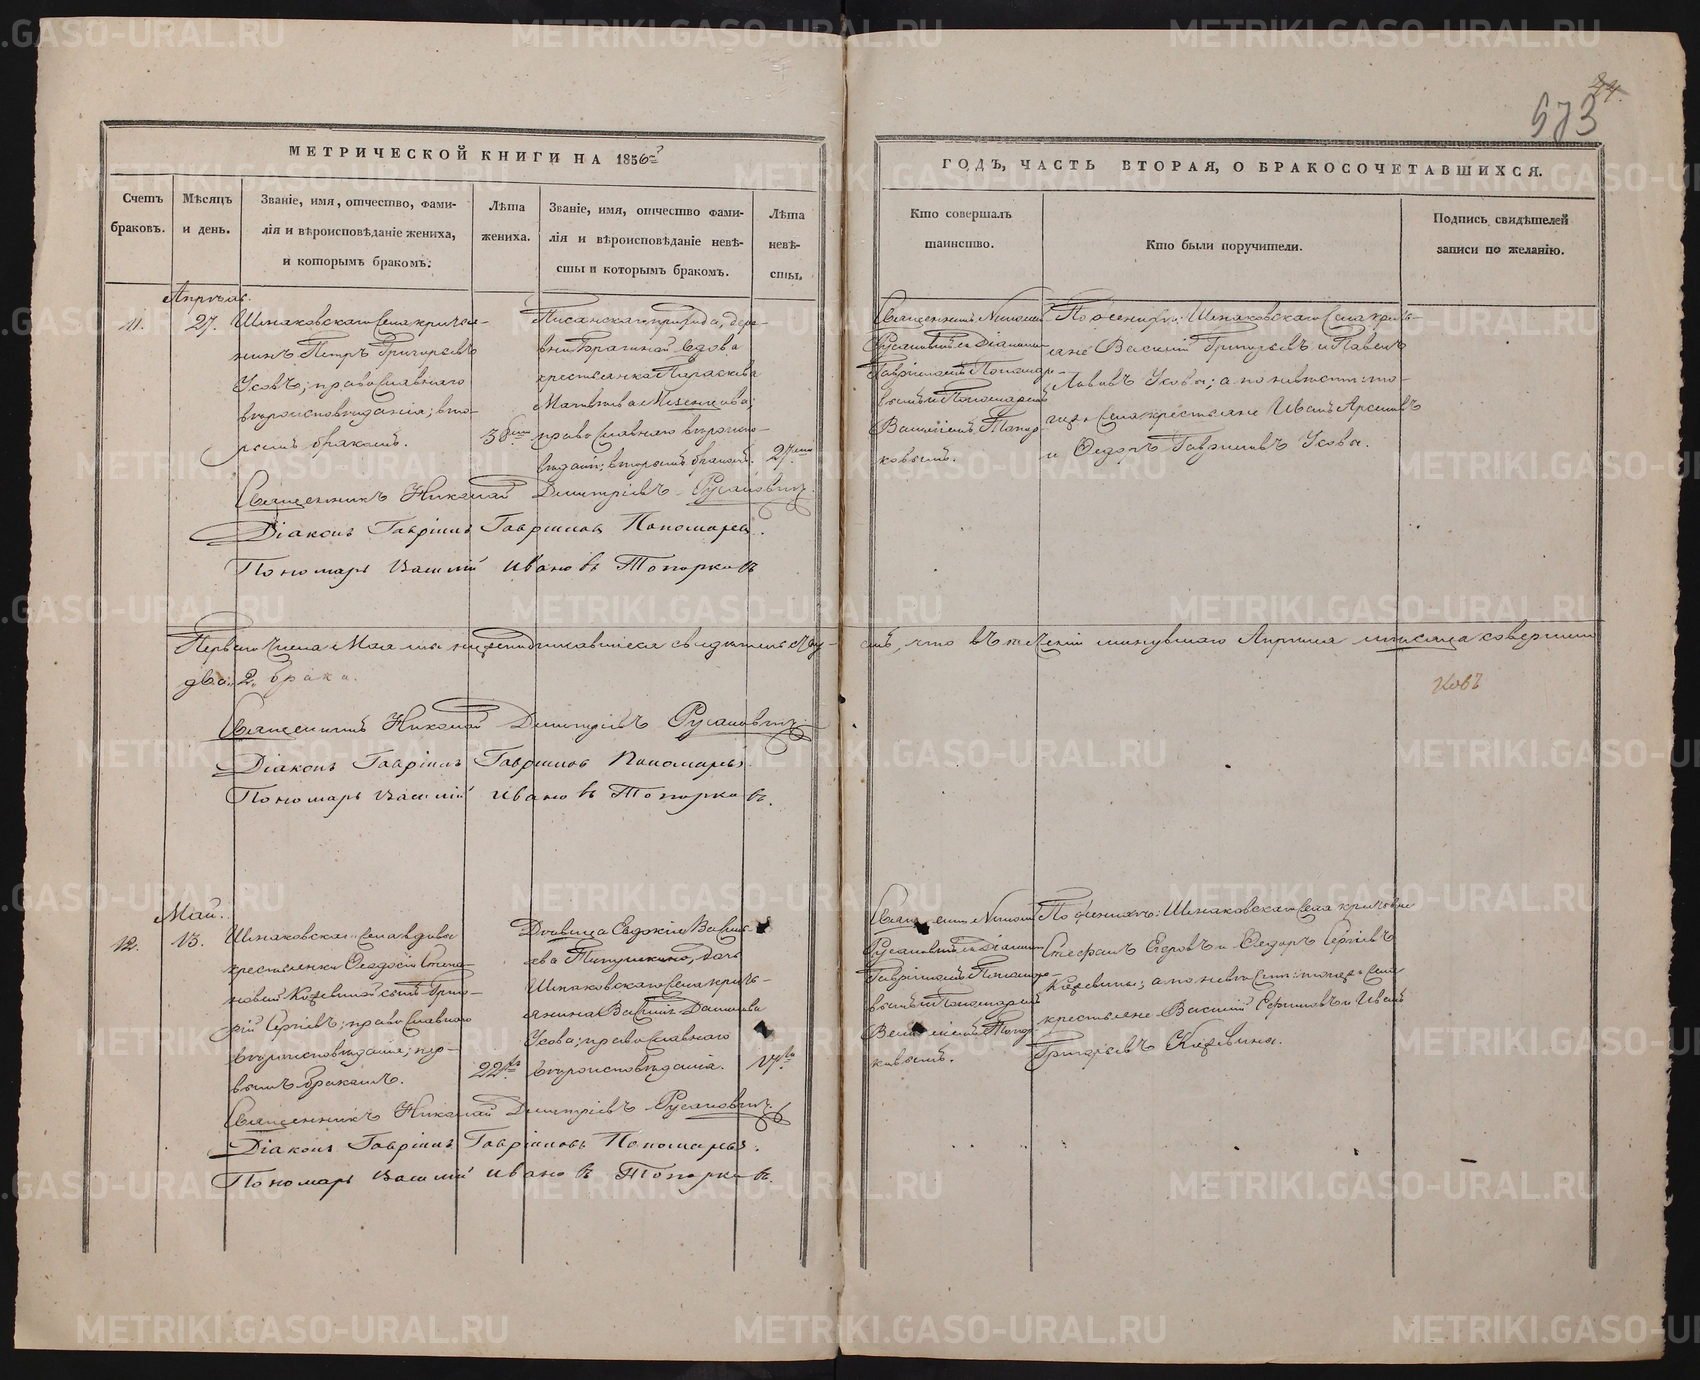 44.
573
МЕТРИЧЕСКОЙ КНИГИ НА 1856й
ГОДЪ, ЧАСТЬ ВТОРАЯ, О БРАКОСОЧЕТАВШИХСЯ.
Счетъ браковъ.
Мѣсяцъ и день.
Званіе, имя, отчество, фами-
лія и вѣроисповѣданіе жениха,
и которымъ бракомъ.
Лѣта
жениха.
Званіе, имя, отчество фами-
лія и вѣроисповѣданіе невѣ-
сты и которымъ бракомъ.
Лѣта
невѣ-
сты.
Кто совершалъ
таинство.
Кто были поручители.
Подпись свидѣтелей
записи по желанію.
Апрѣль.
11.
27.
Шмаковскаго села крестья-
нинъ Петръ Григорьевъ
Усовъ; православнаго
вѣроисповѣданія; вто-
рымъ бракомъ.
Писанскаго прихода, дере-
вни Брагиной вдова
крестьянка Параскева
православнаго вѣроиспо-
вѣданія; вторымъ бракомъ.
27
Священникъ Николай
Русановъ съ Діакономъ
Гавріиломъ Пономаре-
вымъ и Пономаремъ
Василіемъ Топор-
ковымъ.
По женихѣ: Шмаковскаго села кресть-
яне Василій Григорьевъ и Павелъ
Львовъ Усовы; а по невѣстѣ: то-
гоже села крестьяне Иванъ Арсеньевъ
и Ѳедоръ Гавриловъ Усовы.
Священникъ Николай Димитріевъ Русановъ
Діаконъ Гавріилъ Гавріиловъ Пономаревъ.
Пономарь Василій Ивановъ Топорковъ
Перваго числа Мая мы нижеподписавшіеся свидѣтельству-
емъ, что въ теченіи минувшаго Апрѣля мѣсяца совершено
два „2„ брака.
Священникъ Николай Димитріевъ Русановъ
Діаконъ Гавріилъ Гавріиловъ Пономаревъ.
Пономарь Василій Ивановъ Топорковъ.
Май.
12.
13.
Шмаковскаго села вдовы
крестьянки Ѳеодосіи Степа-
новой Кадевиной сынъ Григо-
рій Сергѣевъ; православнаго
вѣроисповѣданія; пер-
вымъ бракомъ.
22
Дѣвица Евдокія Василь-
ева Типушкина, дочь
Шмаковскаго села кресть-
янина Василія Данилова
Усова; православнаго
вѣроисповѣданія.
17
Русановъ съ Діакономъ
Гавріиломъ Пономаре-
вымъ и Пономаремъ
Василіемъ Топор-
ковымъ.
По женихѣ: Шмаковскаго села крестьяне
Стефанъ Егоровъ и Ѳедоръ Сергѣевъ
Кадевины; а по невѣстѣ: тогожъ села
крестьяне Василій Ефимовъ и Иванъ
Григорьевъ Кадевины.
Священникъ Николай Димитріевъ Русановъ
Діаконъ Гавріилъ Гавріиловъ Пономаревъ.
Пономарь Василій Ивановъ Топорковъ.
METRIKI.GASO-URAL.RU